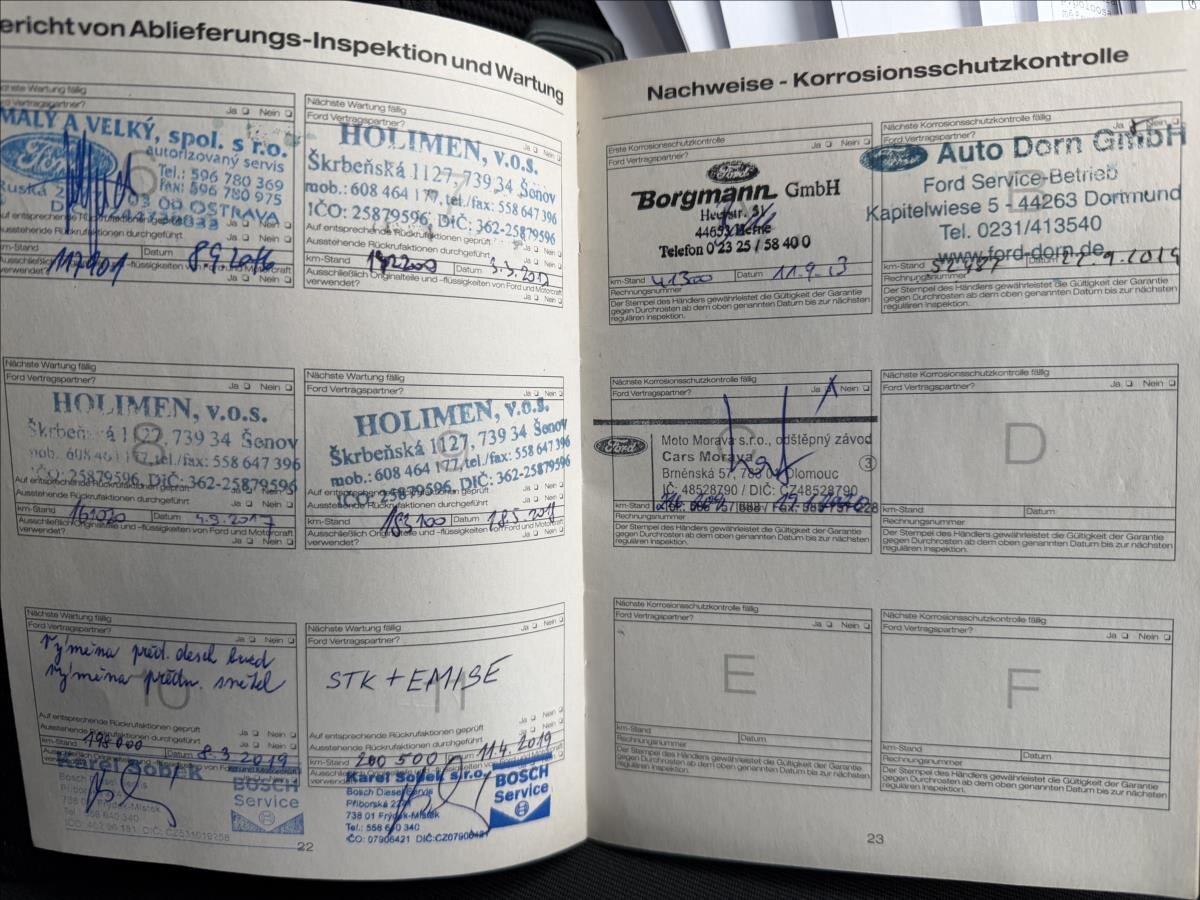 ericht von Ablieferungs-Inspektion und Wartung
Ja Nein
MALÝ A VELKÝ, spol. s r.o.
Ford
autorizovaný servis
Tel.: 596 780 369
Fax: 596 780 975
Ruská
03 00 OSTRAVA
Ausstehenden Rückrufaktionen durchgeführt
km-Stand 117901 Datum
verwendet?
Nächste Wartung fällig
Ford Vertragspartner? Ja Nein
HOLIMEN, v.o.s.
Škrbeňská 1127, 739 34 Šenov
mob.: 608 464 177, tel./fax: 558 647 396
IČO: 25879596, DIČ: 362-25879596
Auf entsprechende Rückrufaktionen geprüft
Ausstehende Rückrufaktionen durchgeführt
km-Stand Datum
Ausschließlich Originalteile und -flüssigkeiten von Ford und Motorcraft
verwendet? Ja Nein
Nächste Wartung fällig
Ford Vertragspartner? Ja Nein
8
HOLIMEN, v.o.s.
Škrbeňská 1127, 739 34 Šenov
mob.: 608 464 177, tel./fax: 558 647 396
IČO: 25879596, DIČ: 362-25879596
Ausstehende Rückrufaktionen durchgeführt
km-Stand 161020 Datum 4.9.2017
Ausschließlich Originalteile und -flüssigkeiten von Ford und Motorcraft
verwendet? Ja Nein
Nächste Wartung fällig
Ford Vertragspartner? Ja Nein
9
HOLIMEN, v.o.s.
Škrbeňská 1127, 739 34 Šenov
mob.: 608 464 177, tel./fax: 558 647 396
IČO: 25879596, DIČ: 362-25879596
km-Stand Datum 18.5.2018
Ausschließlich Originalteile und -flüssigkeiten von Ford und Motorcraft
verwendet? Ja Nein
Nächste Wartung fällig
Ford Vertragspartner? Ja Nein
10
Výměna před.
výměna předn.
Auf entsprechende Rückrufaktionen geprüft
Ausstehende Rückrufaktionen durchgeführt
km-Stand 198000 Datum 8.3.2019
Karel Sobek
BOSCH
Service
Příborská
738 01 Frýdek-Místek
Tel.: 558 640 340
22
Nächste Wartung fällig
Ford Vertragspartner? Ja Nein
11
STK + EMISE
Auf entsprechende Rückrufaktionen geprüft
Ausstehende Rückrufaktionen durchgeführt
km-Stand 200 500 Datum 11.4.2019
Karel Sobek s.r.o.
BOSCH
Service
Bosch Diesel Servis
Příborská
738 01 Frýdek-Místek
Tel.: 558 640 340
IČO: 07906421 DIČ:CZ07906421
Nachweise - Korrosionsschutzkontrolle
Erste Korrosionsschutzkontrolle
Ford Vertragspartner? Ja Nein
Ford
Borgmann GmbH
44653 Herne
Telefon 0 23 25 / 58 40 0
km-Stand 41300 Datum 11.9.13
Rechnungsnummer
Der Stempel des Händlers gewährleistet die Gültigkeit der Garantie
gegen Durchrosten ab dem oben genannten Datum bis zur nächsten
regulären Inspektion.
Nächste Korrosionsschutzkontrolle fällig
Ford Vertragspartner? Ja Nein
B
Ford
Auto Dorn GmbH
Ford Service-Betrieb
Kapitelwiese 5 - 44263 Dortmund
Tel. 0231/413540
www.ford-dorn.de
km-Stand Datum
Rechnungsnummer
Der Stempel des Händlers gewährleistet die Gültigkeit der Garantie
gegen Durchrosten ab dem oben genannten Datum bis zur nächsten
regulären Inspektion.
Nächste Korrosionsschutzkontrolle fällig
Ford Vertragspartner? Ja X Nein
C
Ford
Moto Morava s.r.o., odštěpný závod
Cars Morava
Brněnská 57, Olomouc
3
IČ: 48528790 / DIČ: CZ48528790
Rechnungsnummer
Der Stempel des Händlers gewährleistet die Gültigkeit der Garantie
gegen Durchrosten ab dem oben genannten Datum bis zur nächsten
regulären Inspektion.
Nächste Korrosionsschutzkontrolle fällig
Ford Vertragspartner? Ja Nein
D
km-Stand Datum
Rechnungsnummer
Der Stempel des Händlers gewährleistet die Gültigkeit der Garantie
gegen Durchrosten ab dem oben genannten Datum bis zur nächsten
regulären Inspektion.
Nächste Korrosionsschutzkontrolle fällig
Ford Vertragspartner? Ja Nein
E
km-Stand Datum
Rechnungsnummer
Der Stempel des Händlers gewährleistet die Gültigkeit der Garantie
gegen Durchrosten ab dem oben genannten Datum bis zur nächsten
regulären Inspektion.
Nächste Korrosionsschutzkontrolle fällig
Ford Vertragspartner? Ja Nein
F
km-Stand Datum
Rechnungsnummer
Der Stempel des Händlers gewährleistet die Gültigkeit der Garantie
gegen Durchrosten ab dem oben genannten Datum bis zur nächsten
regulären Inspektion.
23